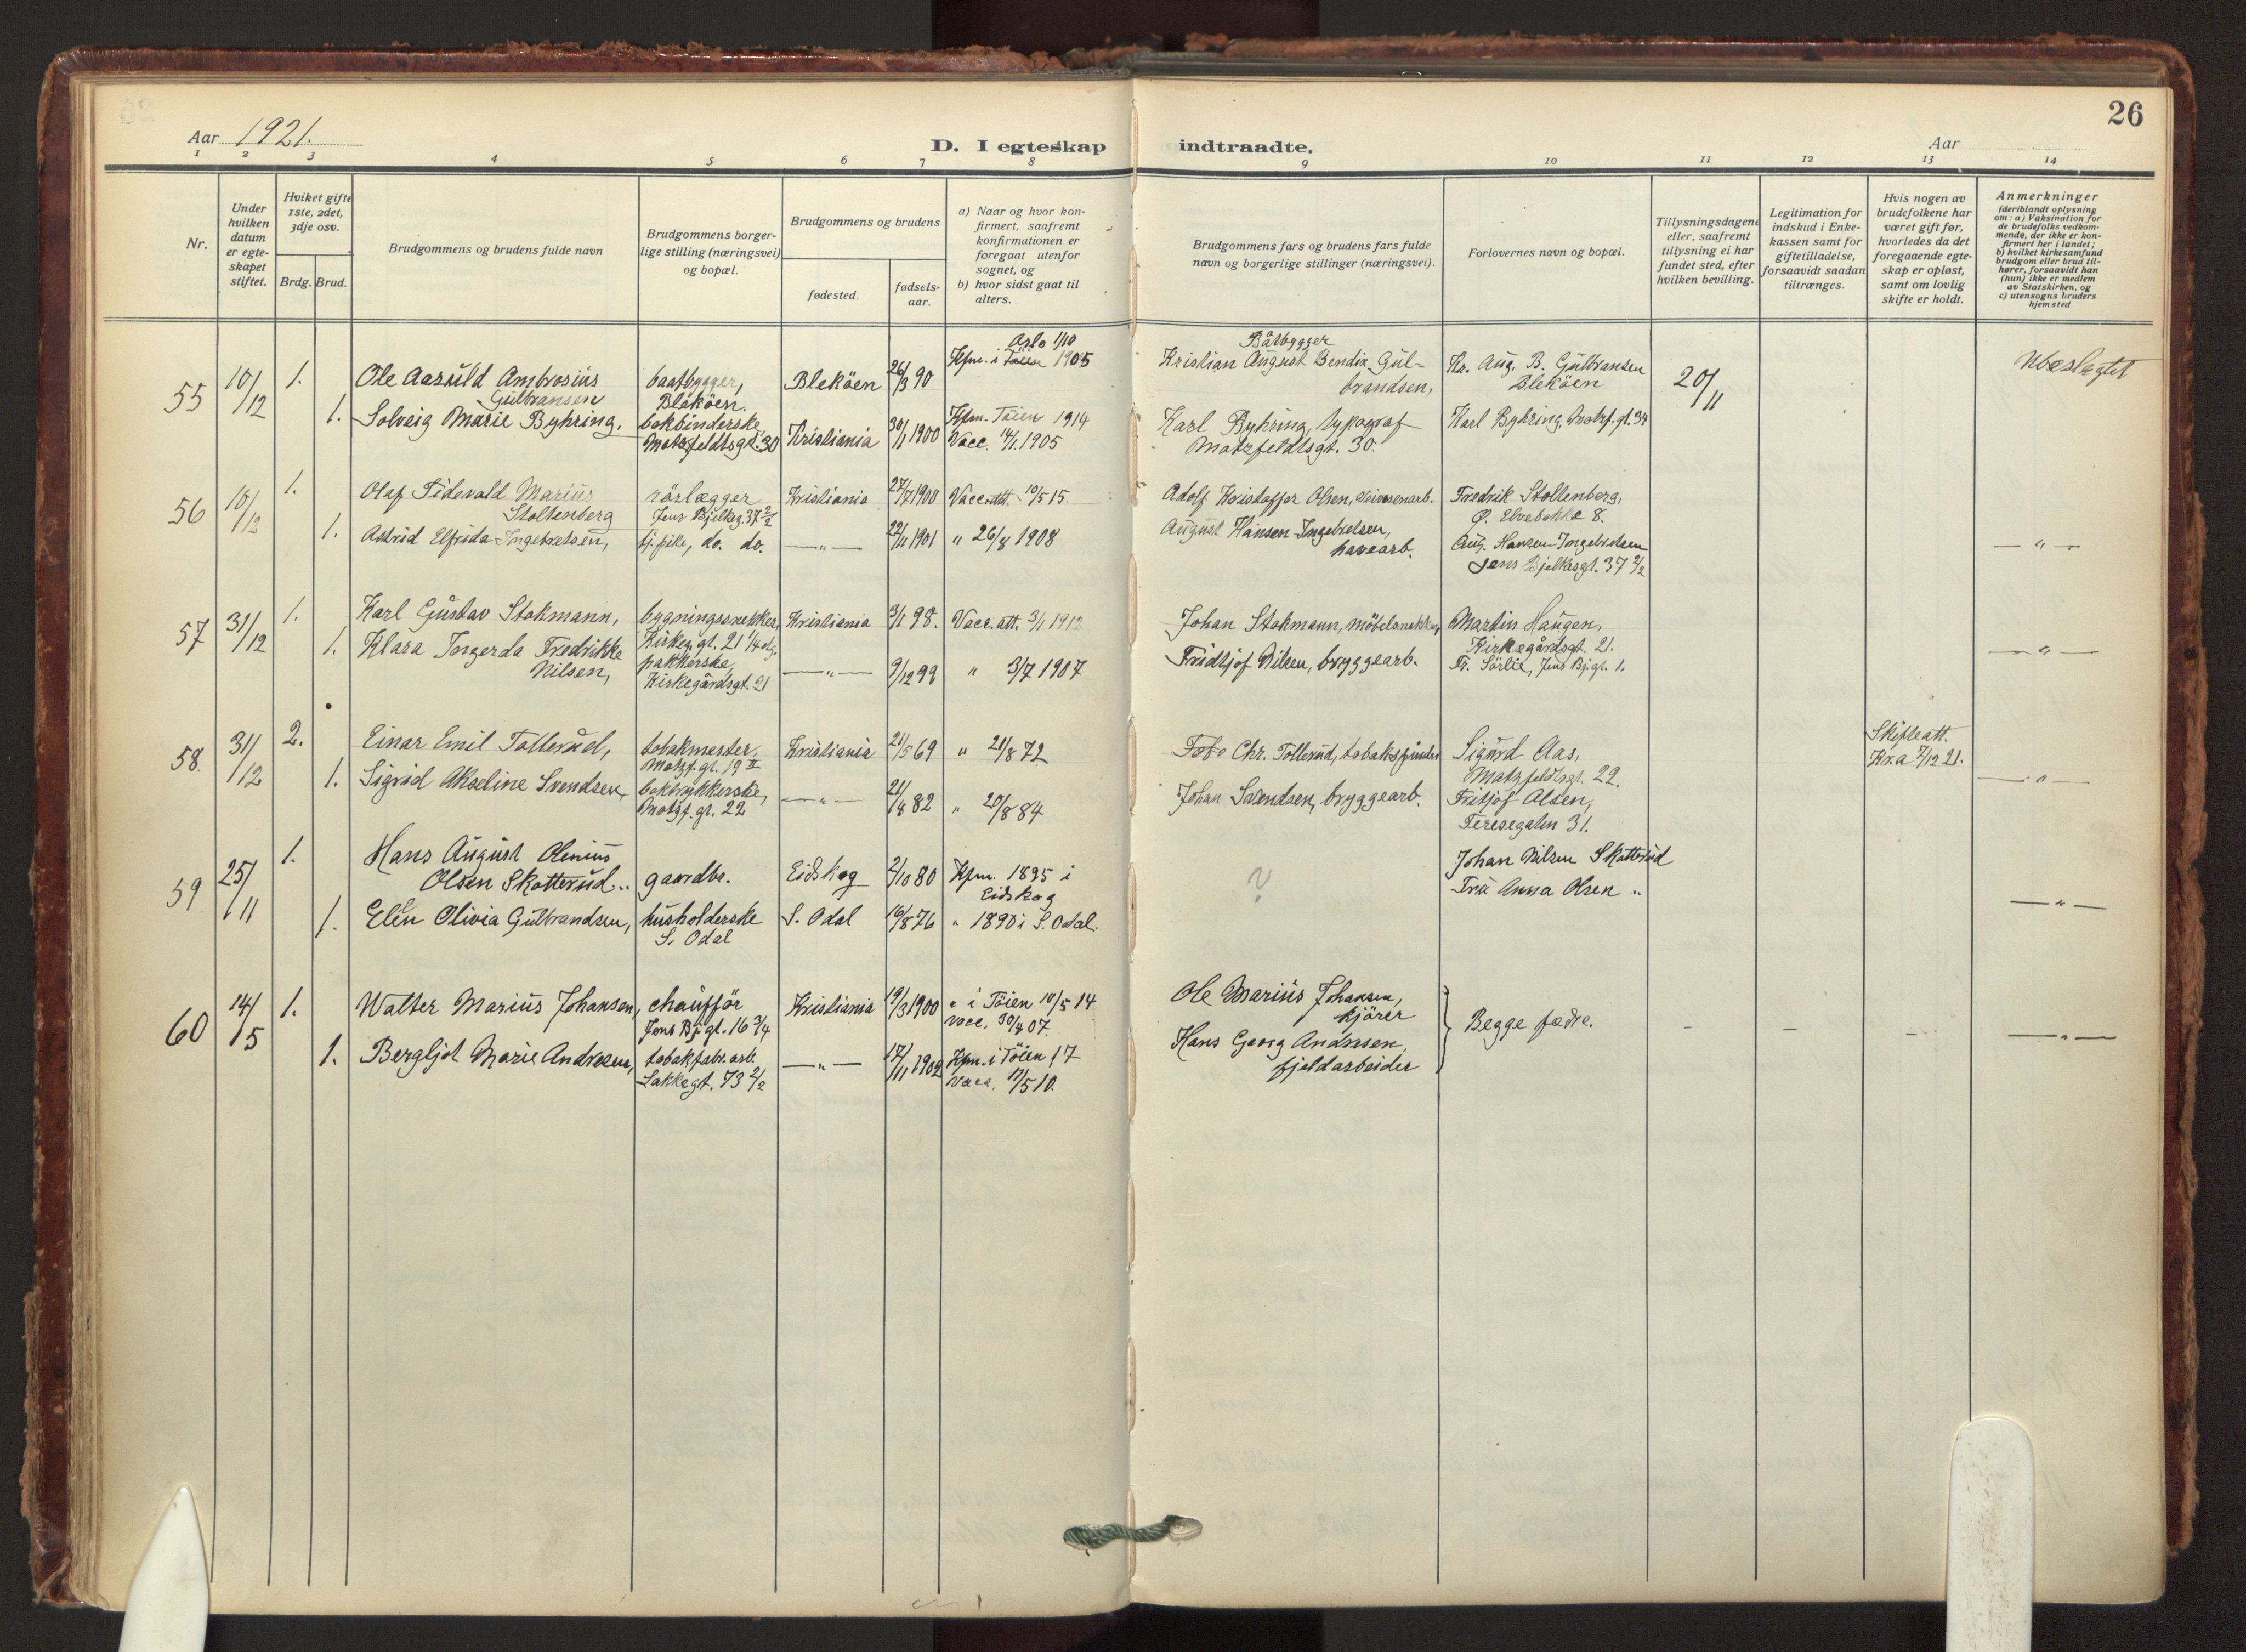 26
Aar 1921.
D. I egteskap indtraadte.
Aar
1 2 3 4 5 6 7 8 9 10 11 12 13 14
Nr.
Under
hvilken
datum
er egte-
skapet
stiftet.
Hviket gifte
1ste, 2det,
3dje osv.
Brdg. Brud.
Brudgommens og brudens fulde navn
Brudgommens borger-
lige stilling (næringsvei)
og bopæl.
Brudgommens og brudens
fødested.
fødsels-
aar.
a) Naar og hvor kon-
firmert, saafremt
konfirmationen er
foregaat utenfor
sognet, og
b) hvor sidst gaat til
alters.
Brudgommens fars og brudens fars fulde
navn og borgerlige stillinger (næringsvei).
Forlovernes navn og bopæl.
Tillysningsdagene
eller, saafremt
tillysning ei har
fundet sted, efter
hvilken bevilling.
Legitimation for
indskud i Enke-
kassen samt for
giftetilladelse,
forsaavidt saadan
tiltrænges.
Hvis nogen av
brudefolkene har
været gift før,
hvorledes da det
foregaaende egte-
skap er opløst,
samt om lovlig
skifte er holdt.
Anmerkninger
(deriblandt oplysning
om: a) Vaksination for
de brudefolks vedkom-
mende, der ikke er kon-
firmert her i landet;
b) hvilket kirkesamfund
brudgom eller brud til-
hører, forsaavidt han
(hun) ikke er medlem
av Statskirken, og
c) utensogns bruders
hjemsted
55
10/12
1.
Ole Aasuld Ambrosius
Gulbransen
baatbygger,
Blekøen.
Blekøen
26/3 90
Oslo 1/10
Kfm. i Tøien 1905
Båtbygger
Kristian August Bendix Gul-
brandsen,
Kr. Aug. B. Gulbransen
Blekøen
20/11
Ubeslegtet
1.
Solveig Marie Byhring.
bokbinderske
Motzfeldtsgt. 30
Kristiania
30/1 1900
Kfm. Tøien 1914
Vacc. 14/1 1905
Karl Byhring, typograf
Motzfeldtsgt. 30.
Karl Byhring, Motzf. gt. 34
56
10/12
1.
Olaf Tidevald Marius
Stoltenberg
rørlægger
Jens Bjelkeg. 37 2/2
Kristiania
27/7 1900
Vacc. att. 10/5 15
Adolf Kristoffer Olsen,
Fredrik Stoltenberg,
Ø. Elvebakke 8.
1.
Astrid Elfrida Ingebretsen,
tj. pike, do. do.
—"—
22/11 1901
" 26/8 1908
August Hansen Ingebretsen,
havearb.
Aug. Hansen Ingebretsen
Jens Bjelkesgt. 37 2/2
—"—
57
31/12
1.
Karl Gustav Stokmann,
bygningssnekker,
Kirkeg. gt. 21 1/4
Kristiania
3/1 98.
Vacc. att. 3/1 1912
Johan Stokmann, møbelsnekker
Martin Haugen,
Kirkegårdsgt. 21.
1.
Klara Ingerda Fredrikke
Nilsen,
pakkerske,
Kirkegårdsgt. 21
—"—
9/12 99
" 3/7 1907
Fridtjof Nilsen, bryggearb.
Fr. Sørlie, Jens Bj. gt. 1.
—"—
58.
31/12
2.
Einar Emil Tollerud,
tobakmester,
Motzf. gt. 19 II
Kristiania
21/5 69
" 21/8 72
Chr. Tollerud, tobaksspinder
Sigurd Aas,
Motzfeldtsgt. 22.
Skifteatt.
Kr.a 7/12 21.
1.
Sigrid Akseline Svendsen,
boktrykkerske,
Motzf. gt. 22
—"—
21/8 82
" 20/8 84
Johan Svendsen, bryggearb.
Fritjof Olsen,
Teresegaten 31.
—"—
59
25/11
1.
Hans August Olenius
Olsen Skotterud
gaardbr.
Eidskog
2/10 80
Kfm. 1895 i
Eidskog
?
Johan Nilsen Skotterud
Fru Anna Olsen "
1.
Elen Olivia Gulbrandsen,
husholderske
S. Odal
S. Odal
16/8 76
" 1890 i S. Odal.
—"—
60
14/5
1.
Walter Marius Johansen,
chauffør
Jens Bj. gt. 16 3/4
Kristiania
19/3 1900
" i Tøien 10/5 14
vacc. 30/4 07.
Ole Marius Johansen,
kjører
Begge fædre.
1.
Bergljot Marie Andresen,
tobakfabr. arb.
Lakkegt. 73 2/2
—"—
17/11 1902
Kfm. i Tøien 17
Vacc. 17/5 10.
Hans Georg Andresen,
fjeldarbeider
— — — —"—